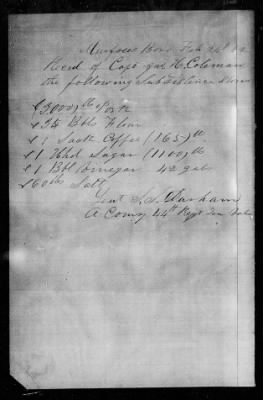 Murfrees Boro Feb 24th 62
Recd of Capt Jas H. Coleman
the following Subsistence Stores
(3000) lbs Pork
25 Bbls Flour
1 Sack Coffee (165) lb
1 Hhd Sugar (1100) lb
1 Bbl Vinegar 42 gals
60 lbs Salt
Lieut Durham
A Comsy 44th Regt Ten Vols